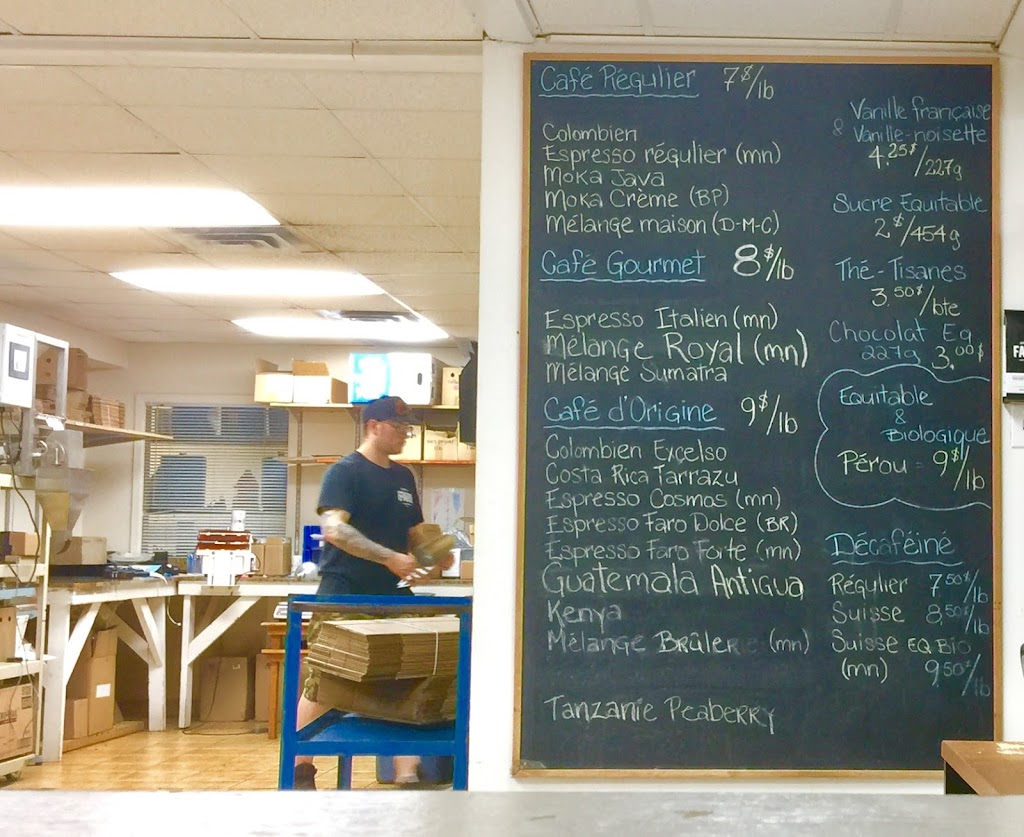 Café Régulier 7$/lb
Colombien
Espresso régulier (mn)
Moka Java
Moka Crème (BP)
Mélange maison (D-M-C)
Café Gourmet 8$/lb
Espresso Italien (mn)
Mélange Royal (mn)
Mélange Sumatra
Café d'Origine 9$/lb
Colombien Excelso
Costa Rica Tarrazu
Espresso Cosmos (mn)
Espresso Faro Dolce (BR)
Espresso Faro Forte (mn)
Guatemala Antigua
Kenya
Mélange Brûler (mn)
Tanzanie Peaberry
Vanille française
& Vanille-noisette
4.25$/227g
Sucre Equitable
2$/454g
Thé-Tisanes
3.50$/bte
Chocolat Eq
227g 3.00$
Equitable
&
Biologique
Pérou = 9$/lb
Décaféiné
Régulier 7.50$/lb
Suisse 8.50$/lb
Suisse EQ BIO
(mn) 9.50$/lb